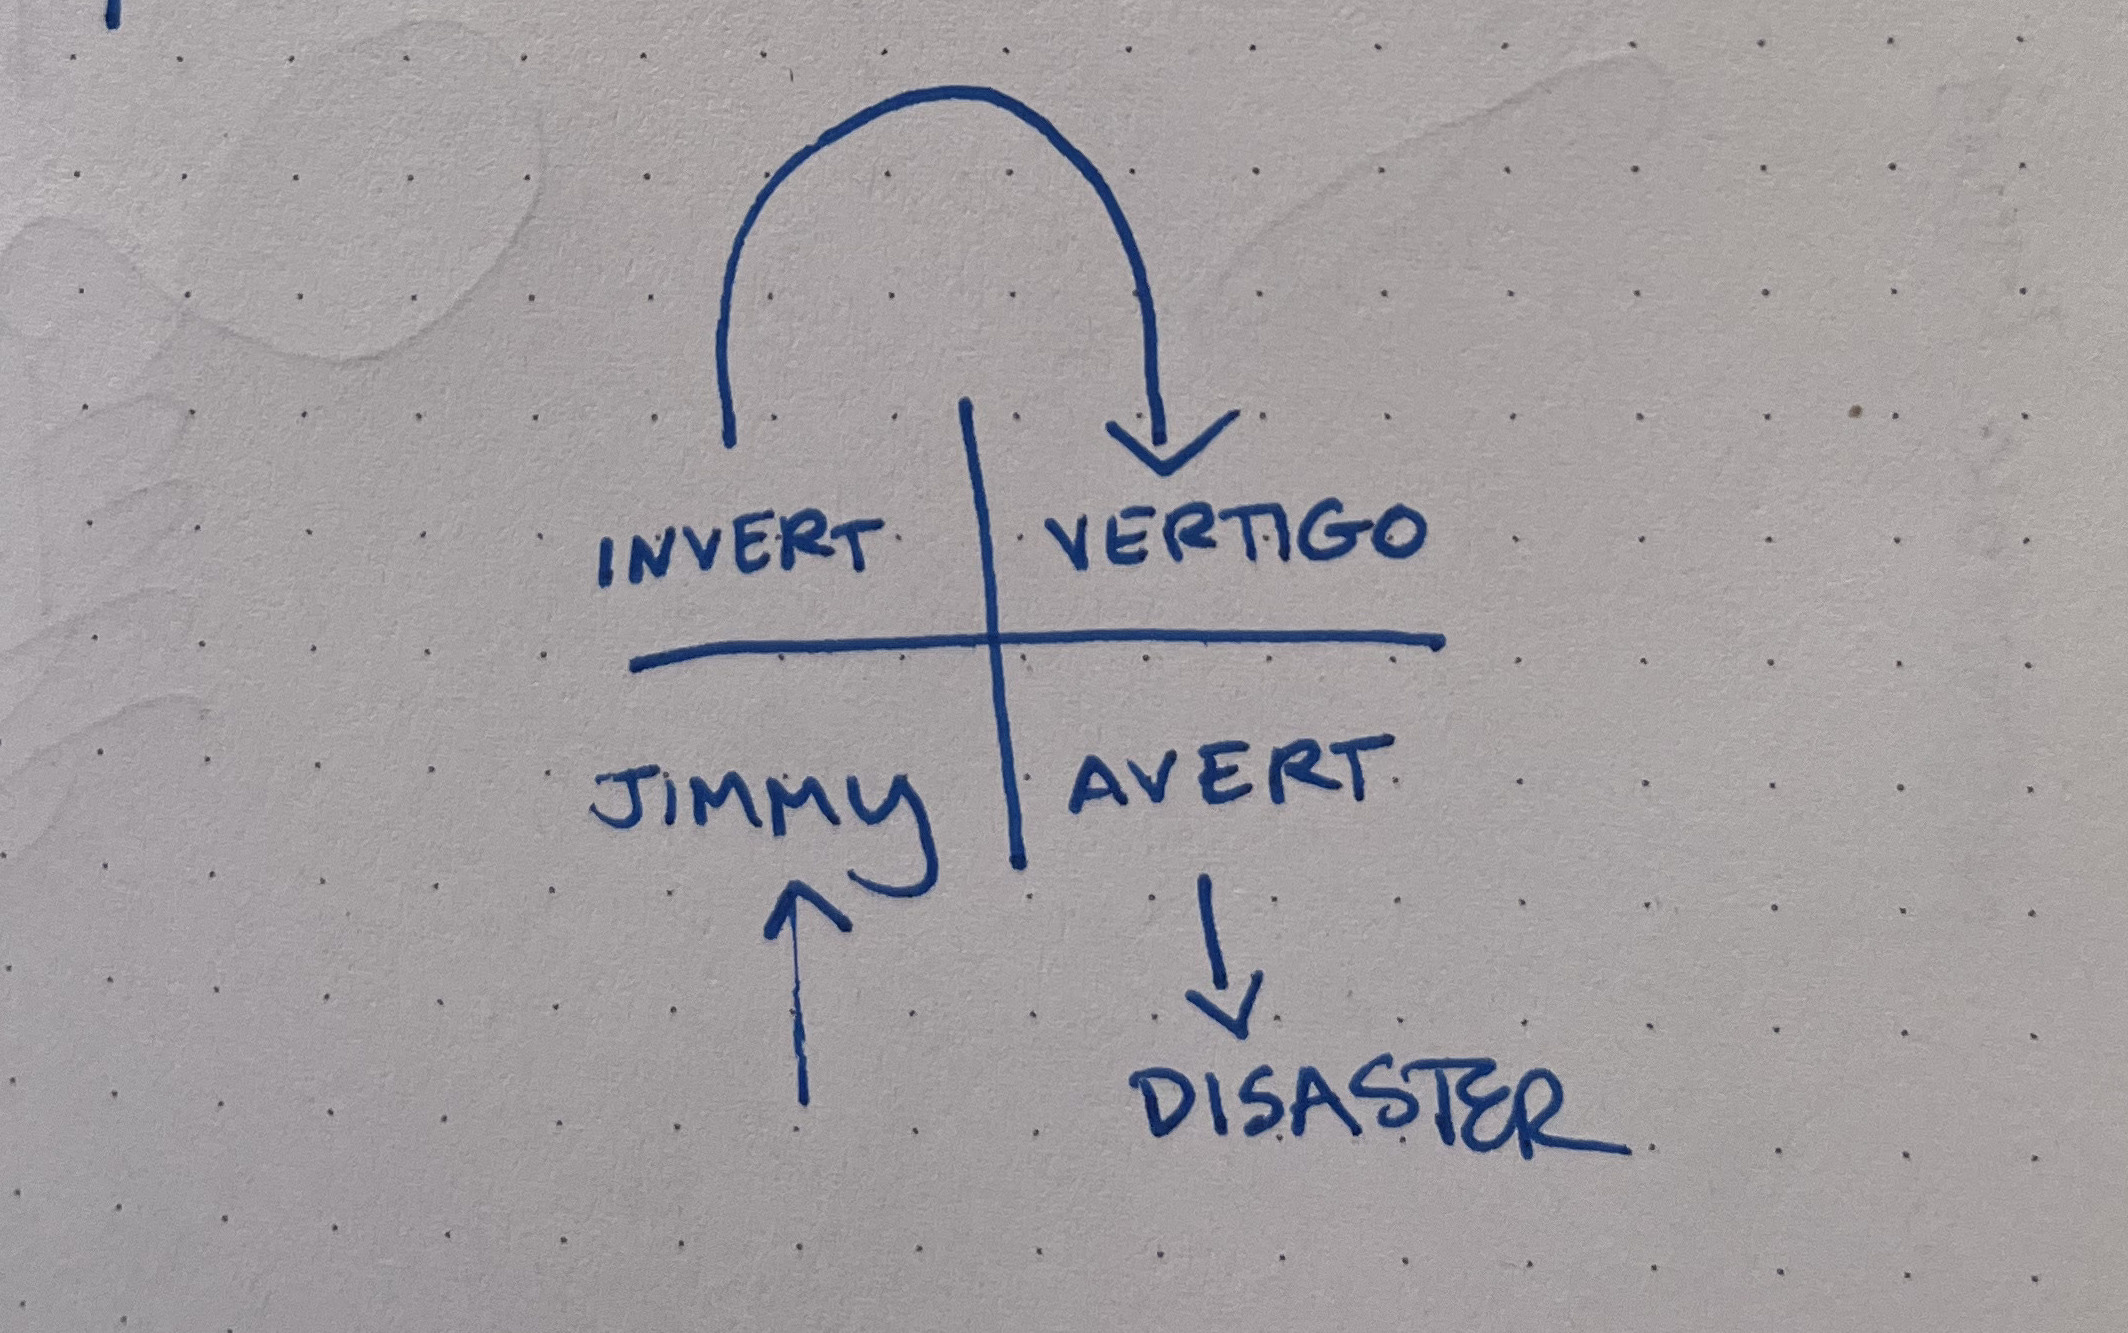 INVERT VERTIGO
JIMMY AVERT
DISASTER